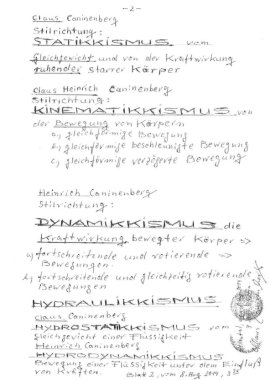 - 2 -
Claus Caninenberg
Stilrichtung:
STATIKKISMUS vom
Gleichgewicht und von der Kraftwirkung
ruhender starrer Körper
Claus Heinrich Caninenberg
Stilrichtung:
KINEMATIKKISMUS von
der Bewegung von Körpern
a, gleichförmige Bewegung
b, gleichförmige beschleunigte Bewegung
c, gleichförmig verzögerte Bewegung
Heinrich Caninenberg
Stilrichtung:
DYNAMIKKISMUS die
Kraftwirkung bewegter Körper =>
a, fortschreitende und rotierende =>
Bewegungen
b, fortschreitende und gleichzeitig rotierende
Bewegungen
HYDRAULIKKISMUS
Claus Caninenberg
HYDROSTATIKKISMUS vom
Gleichgewicht einer Flüssigkeit
Heinrich Caninenberg
HYDRODYNAMIKKISMUS
Bewegung einer Flüssigkeit unter dem Einfluß
von Kräften. Blatt 2, vom